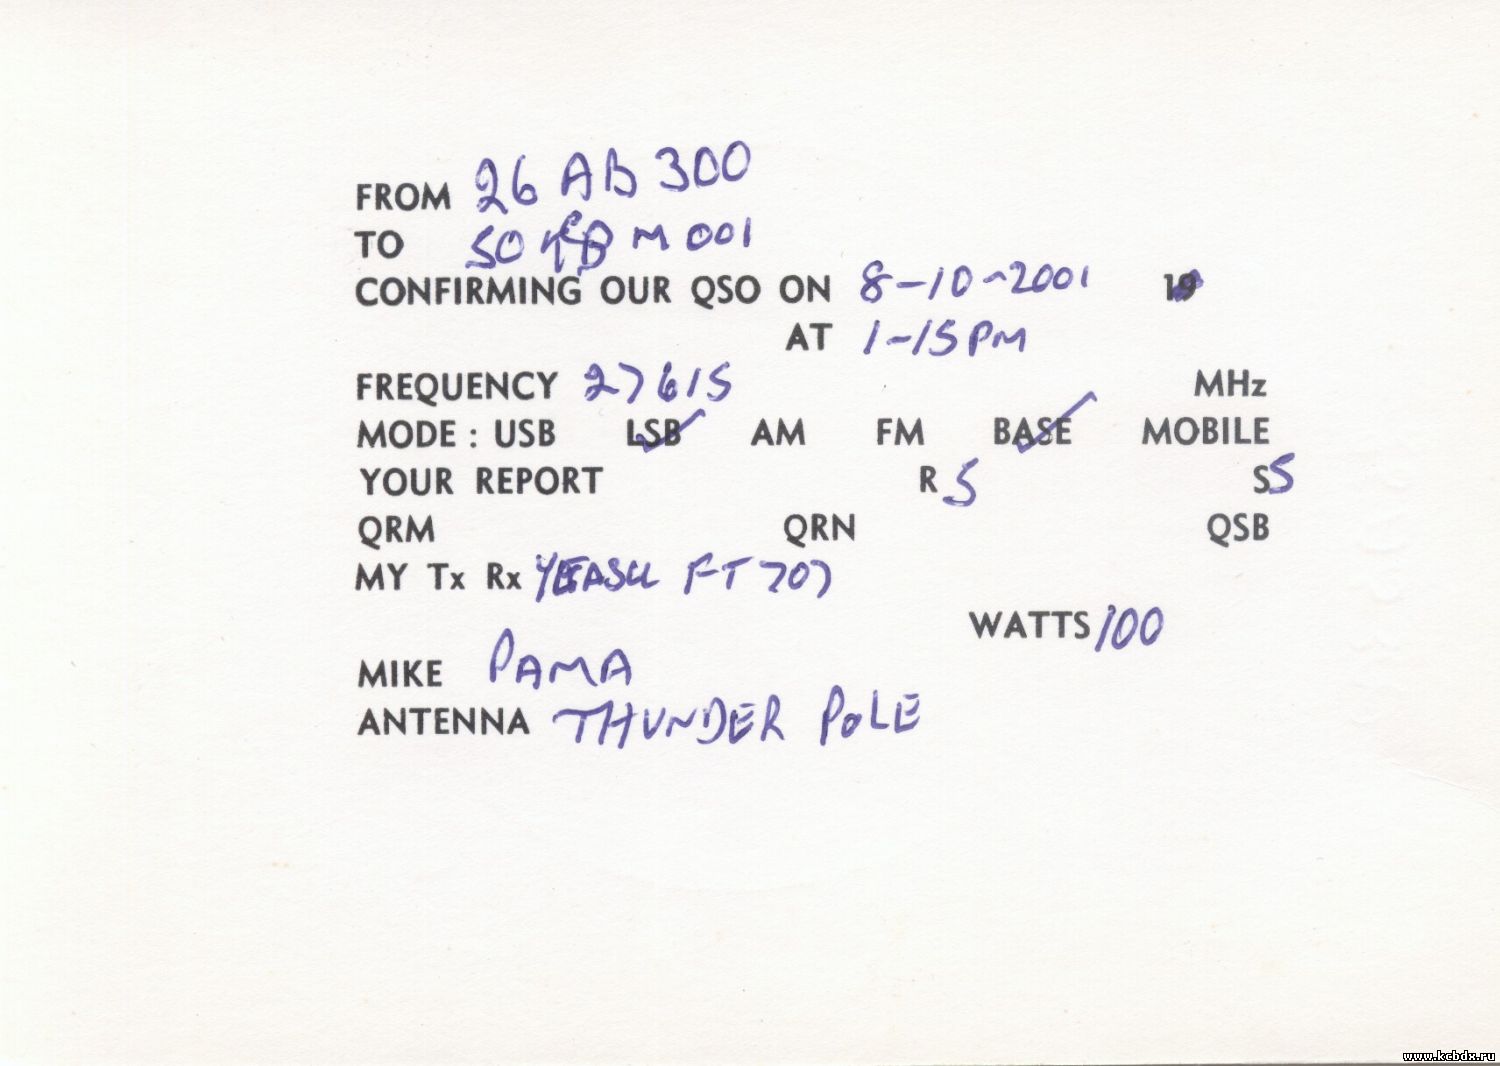 FROM 26 AB 300
TO 50 M 001
CONFIRMING OUR QSO ON 8-10-2001 19
AT 1-15 PM
FREQUENCY 27615 MHz
MODE : USB LSB AM FM BASE MOBILE
YOUR REPORT R 5 S 5
QRM QRN QSB
MY Tx Rx YEASU FT 707
WATTS 100
MIKE PAMA
ANTENNA THUNDER POLE
www.kcbdx.ru